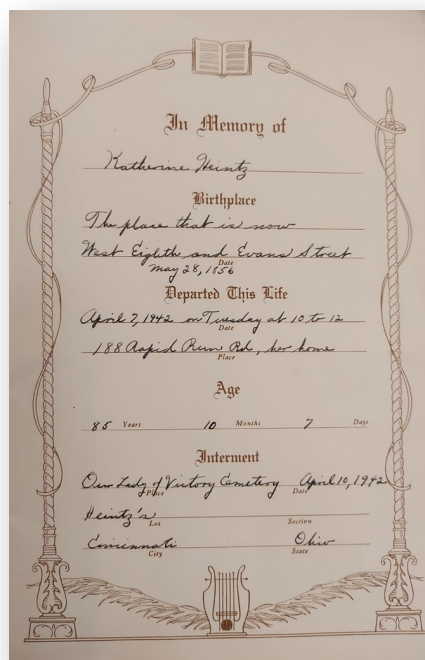 In Memory of
Katherine Heintz
Birthplace
The place that is now
West Eighth and Evans Street
Date
May 28, 1856
Departed This Life
April 7, 1942 on Tuesday at 10 to 12
Date
188 Rapid Run Rd, her home
Place
Age
85 Years 10 Months 7 Days
Interment
Our Lady of Victory Cemetery April 10, 1942
Place Date
Heintz's
Lot Section
Cincinnati Ohio
City State